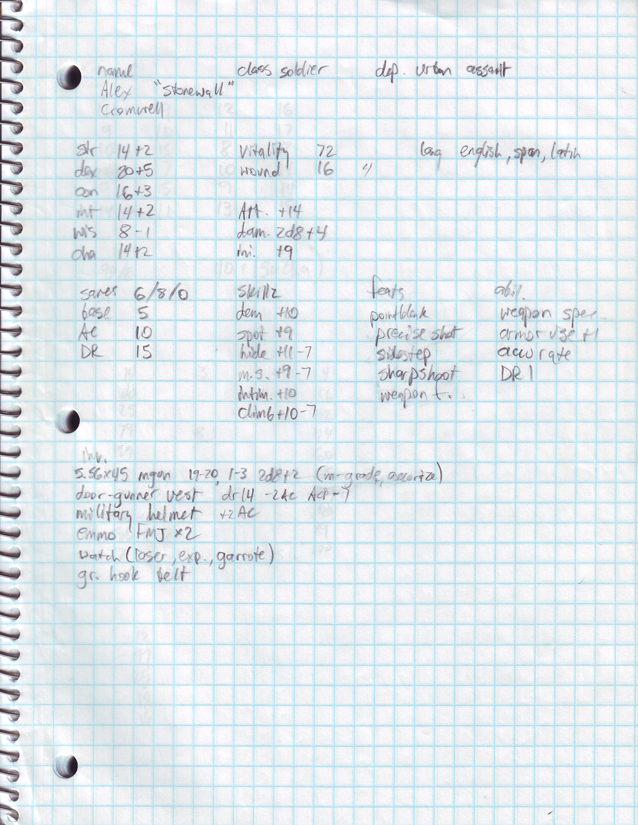 name class soldier dep. urban assault
Alex "Stonewall"
Cromwell
str 14+2 vitality 72 lang english, span, latin
dex 20+5 wound 16
con 16+3
int 14+2 Att. +14
wis 8-1 dam. 2d8+4
cha 14+2 ini. +9
saves 6/8/0 skillz feats abil.
base 5 dem +10 pointblank weapon spec.
AC 10 spot +9 precise shot armor use +1
DR 15 hide +11-7 sidestep accurate
m.s. +9-7 sharpshoot DR 1
intim. +10 weapon f.
climb +10-7
inv.
5.56x45 mgan 19-20, 1-3 2d8+2 (m-grade, accurize)
door-gunner vest dr14 -2AC ACP-7
military helmet +2AC
ammo FMJ x2
watch (laser, exp., garrote)
gr. hook belt